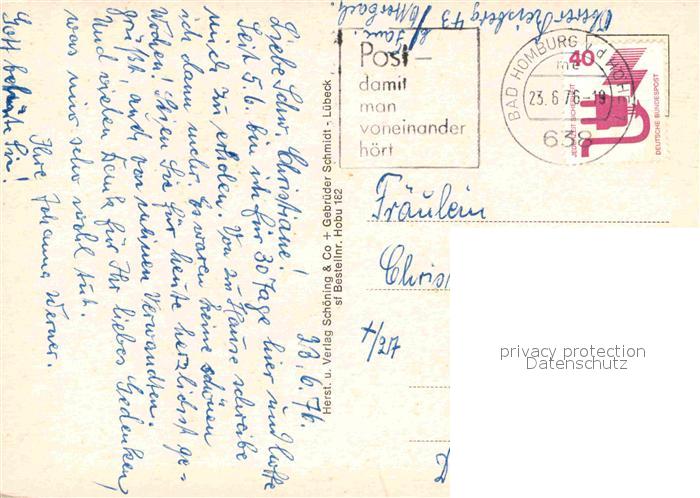 23.6.76.
Liebe Schw. Christiane!
Seit 5.6. bin ich für 30 Tage hier und hatte
mich zu erholen. Von zu Hause schreibe
ich dann mehr. Es waren keine schönen
Wochen! Seien Sie für heute herzlichst ge-
grüßt, auch von meinen Verwandten.
Und vielen Dank für Ihr liebes Gedenken,
was mir sehr wohl tut.
Gott behüte Sie!
Ihre Johanna Werner.
Herst. u. Verlag Schöning & Co + Gebrüder Schmidt - Lübeck
sf Bestellnr. Hobu 182
Post –
damit
man
voneinander
hört
BAD HOMBURG v d HÖHE
mc
23.6.76-19
638
40
JEDERZEIT SICHERHEIT
DEUTSCHE BUNDESPOST
Fräulein
Chris
+/27
privacy protection
Datenschutz